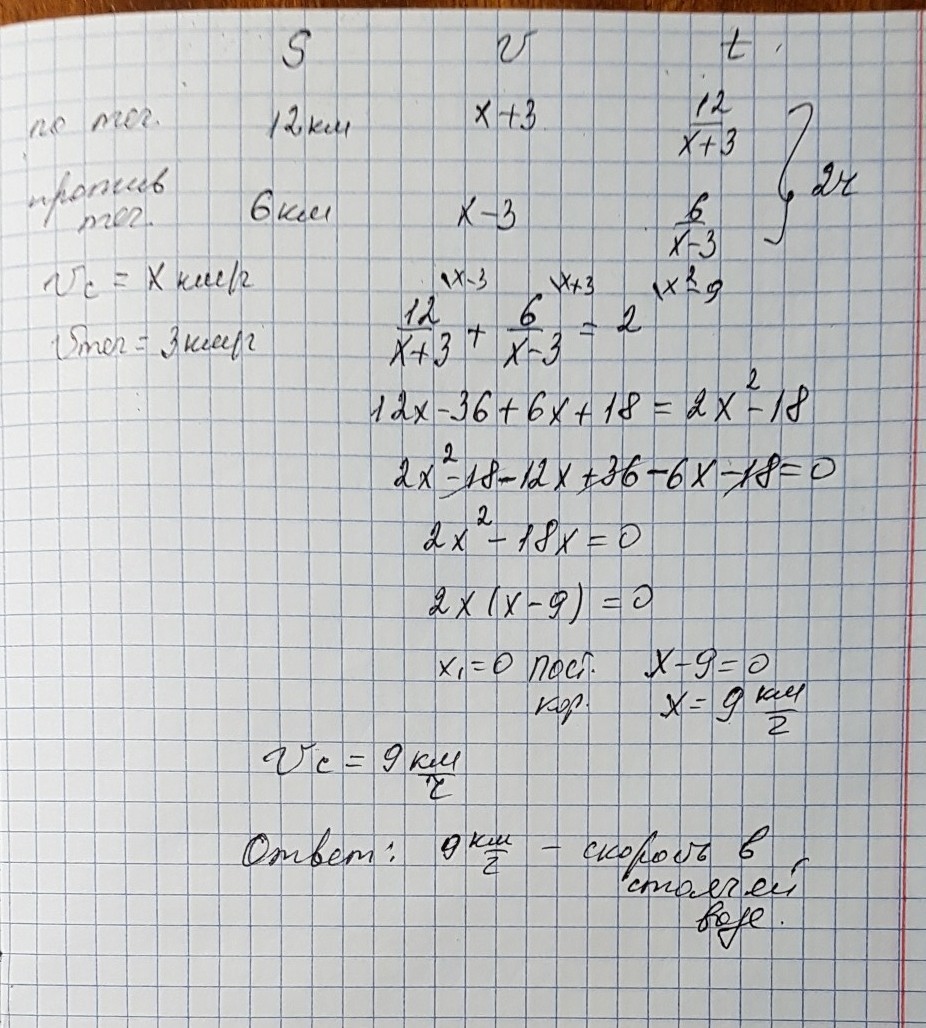 S v t
по теч. 12 км x+3 12/(x+3)
против
теч. 6 км x-3 6/(x-3) } 2ч
Vс = x км/ч
Vтеч = 3 км/ч
12/(x+3) \x-3 + 6/(x-3) \x+3 = 2 \x²-9
12x-36+6x+18 = 2x²-18
2x²-18-12x+36-6x-18=0
2x²-18x=0
2x(x-9)=0
x₁=0 пост. x-9=0
кор. x=9 км/ч
Vс = 9 км/ч
Ответ: 9 км/ч – скорость в
стоячей
воде.